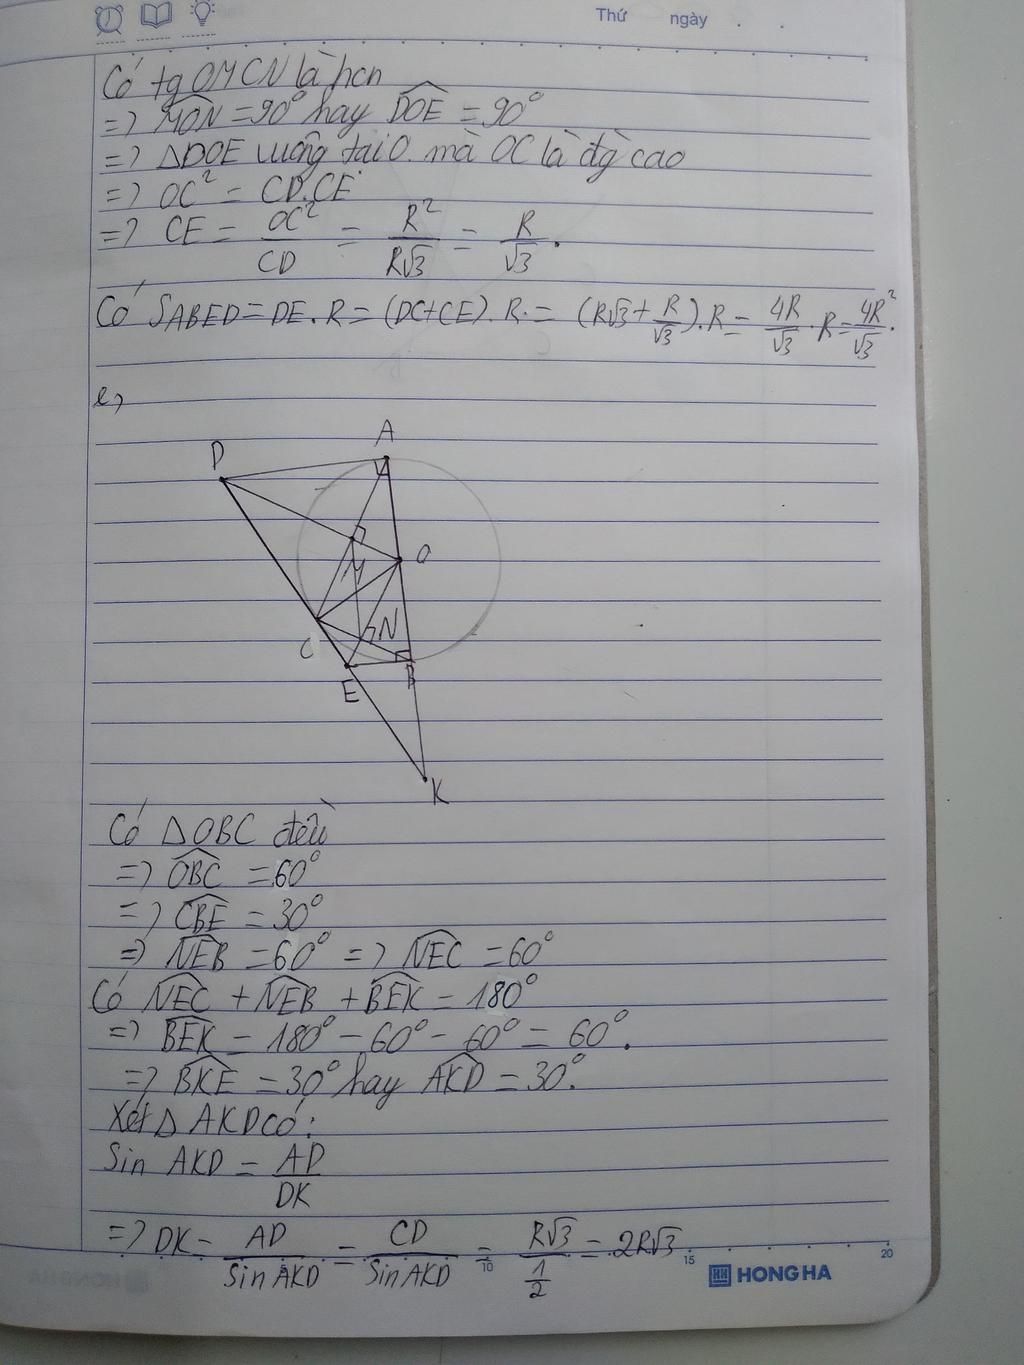 Thứ ngày . .
Có tg OMCN là hcn
=> MON = 90° hay DOE = 90°
=> ΔDOE vuông tại O. mà OC là đg cao
=> OC² = CD.CE
=> CE = OC²/CD = R²/R√3 = R/√3.
Có SABED = DE.R = (DC+CE).R. = (R√3 + R/√3).R = 4R/√3 . R = 4R²/√3.
e,
A
D
O
M
N
C
B
E
K
Có ΔOBC đều
=> OBC = 60°
=> CBE = 30°
=> NEB = 60° => NEC = 60°
Có NEC + NEB + BEK = 180°
=> BEK = 180° - 60° - 60° = 60°.
=> BKE = 30° hay AKD = 30°.
Xét Δ AKD có:
Sin AKD = AD/DK
=> DK = AD/Sin AKD = CD/Sin AKD = R√3/(1/2) = 2R√3
5 10 15 20
HONG HA